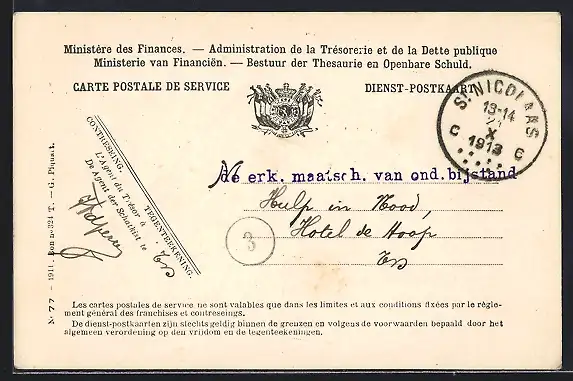 Ministère des Finances. — Administration de la Trésorerie et de la Dette publique
Ministerie van Financiën. — Bestuur der Thesaurie en Openbare Schuld.
CARTE POSTALE DE SERVICE
DIENST-POSTKAART
St NICOLAAS
13-14
X
1913
C C
CONTRESEING.
L'Agent du Trésor à
De Agent der Schatkist te
TEGENTEEKENING.
de erk. maatsch. van ond. bijstand
Hulp in Nood,
Hotel de Hoop
3
N° 77 — 1911. Bon n° 324 T. — G. Piquart.
Les cartes postales de service ne sont valables que dans les limites et aux conditions fixées par le règle-
ment général des franchises et contreseings.
De dienst-postkaarten zijn slechts geldig binnen de grenzen en volgens de voorwaarden bepaald door het
algemeen verordening op den vrijdom en de tegenteekeningen.